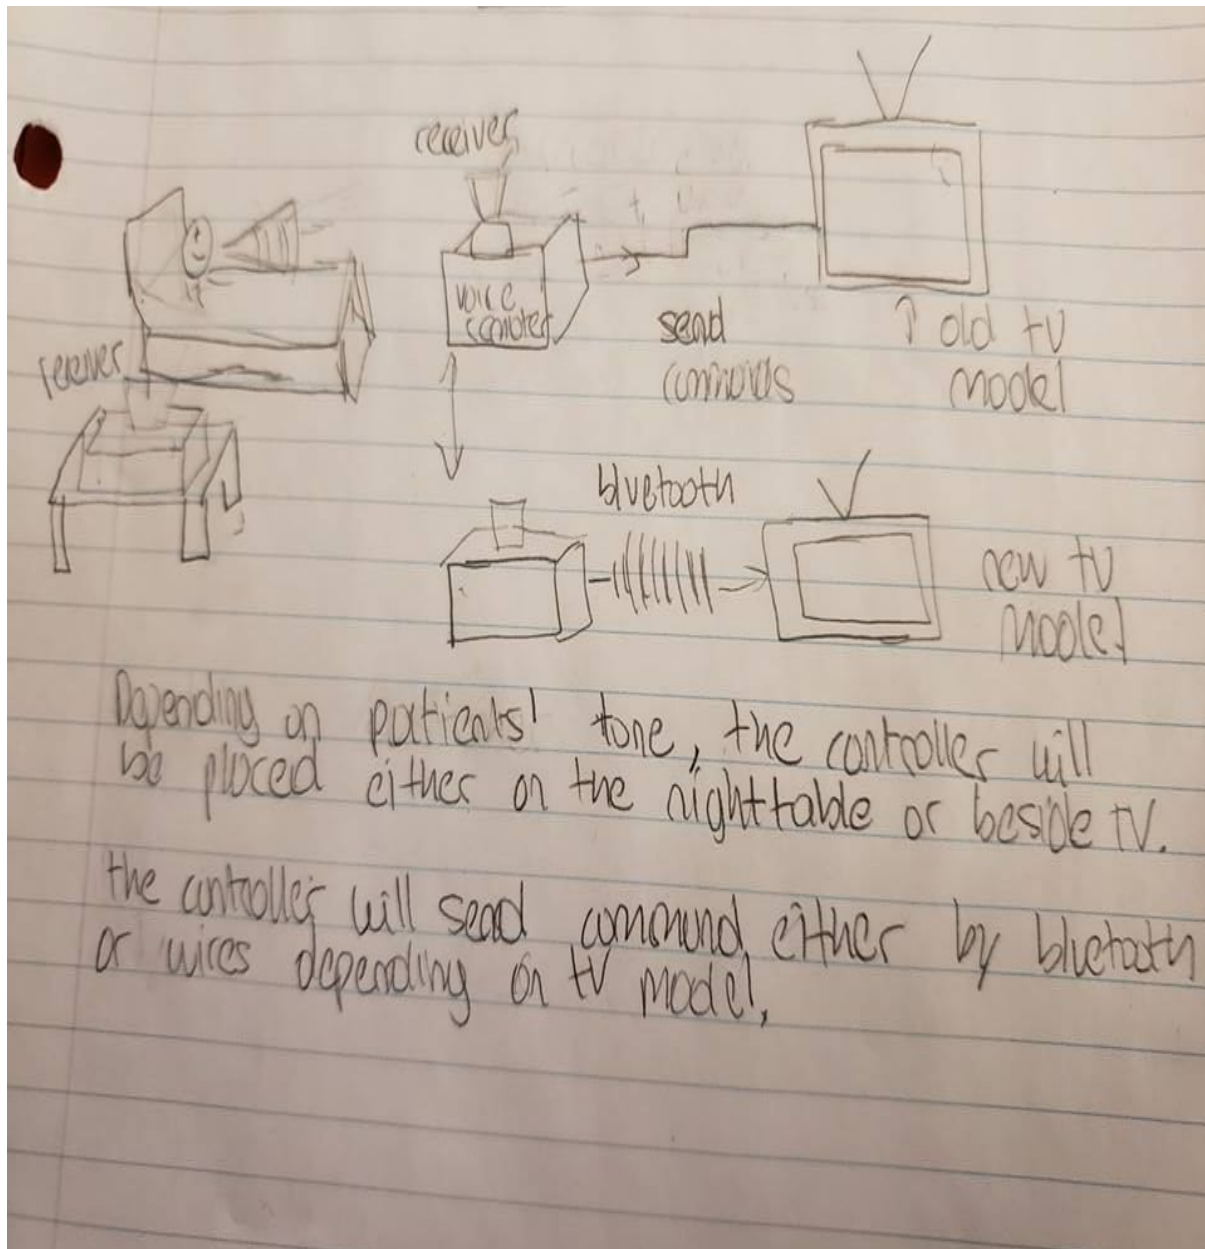 receiver
receiver
send
commands
↑ old tv
model
bluetooth
new tv
model
Depending on patients' tone, the controller will
be placed either on the nighttable or beside TV.
the controller will send command either by bluetooth
or wires depending on tv model,